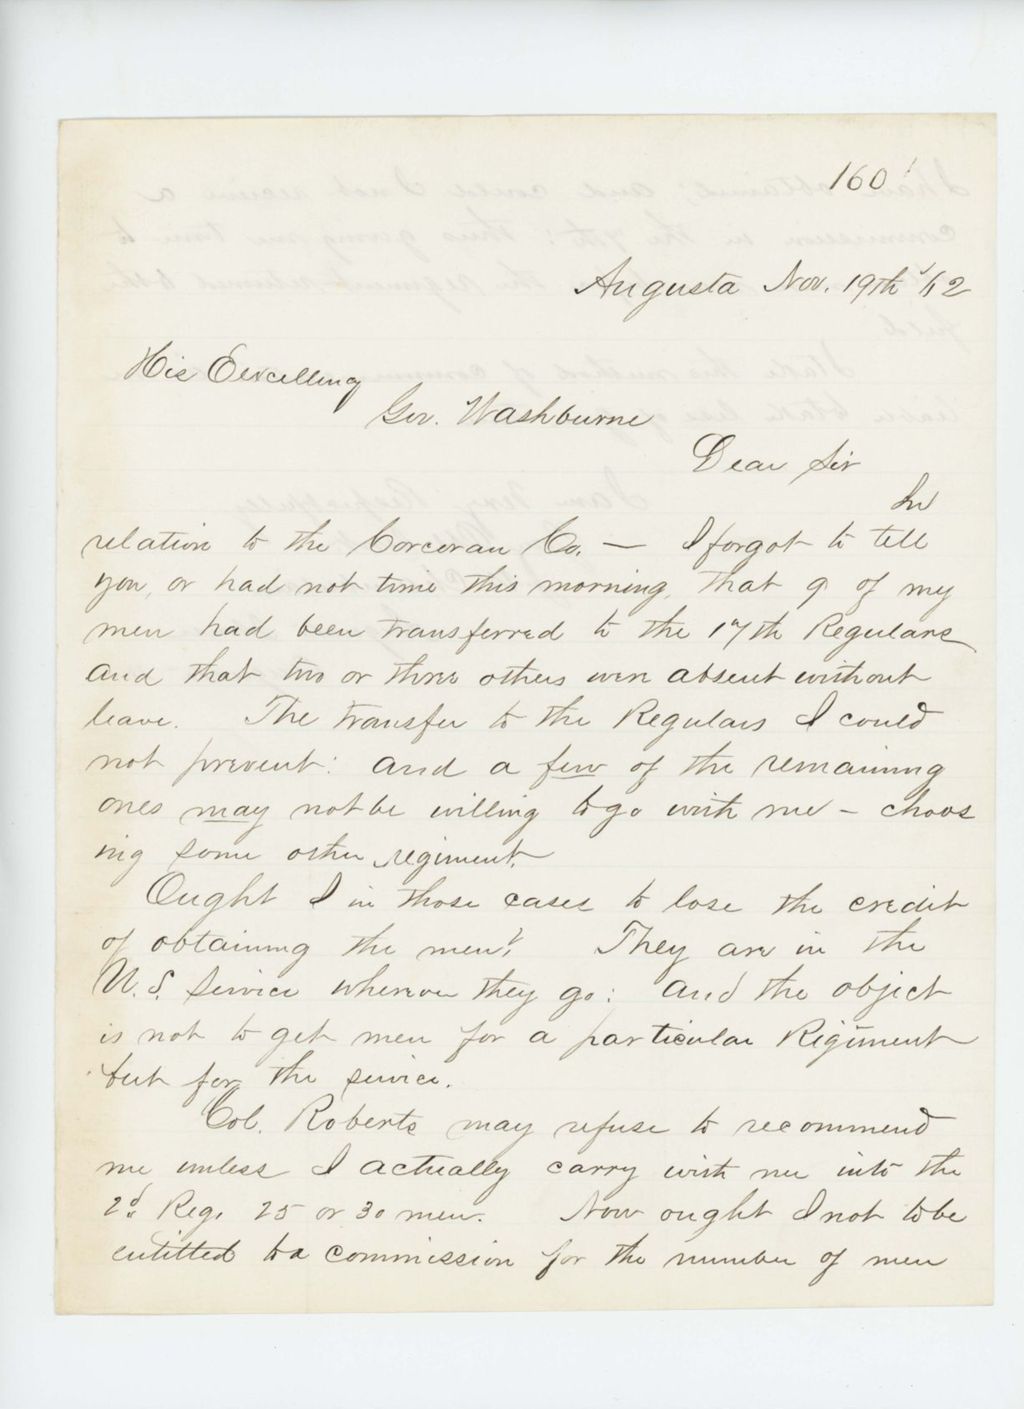 160
Augusta Nov. 19th '62
His Excellency
Gov. Washburne
Dear Sir
In
relation to the Corcoran Co. — I forgot to tell
you, or had not time this morning, that 9 of my
men had been transferred to the 17th Regulars
and that two or three others were absent without
leave. The transfer to the Regulars I could
not prevent: and a few of the remaining
ones may not be willing to go with me - choos
ing some other regiment.
Ought I in those cases to lose the credit
of obtaining the men? They are in the
U.S. Service wherever they go: and the object
is not to get men for a particular Regiment
but for the service.
Col. Roberts may refuse to recommend
me unless I actually carry with me into the
2d. Reg. 25 or 30 men. Now ought I not to be
entitled to a commission for the number of men